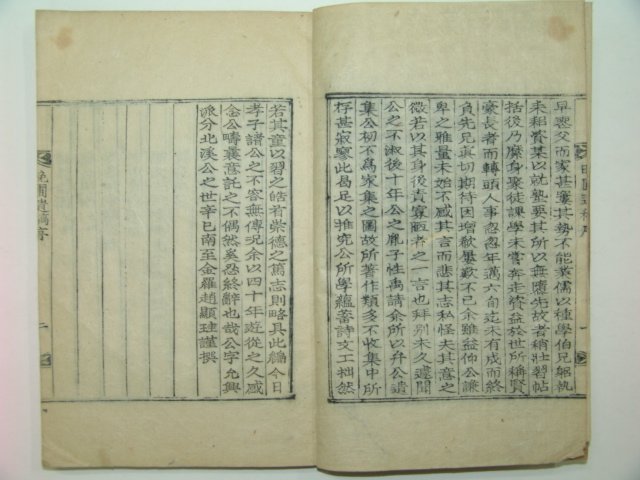 早喪父而家甚寠其勢不能業儒以種學伯兄躬執
耒耜資某以就塾奭其所以無應先故者稍壯習帖
括後乃糜身聚徒課學未嘗奔走資益於世所稱賢
豪長者而轉頭人事忽忽年邁六旬迄未有成而終
負先見眞切期待因增歔欷不已余雖益仰公謙
卑之雅量未始不感其言而悲其志私怪夫其意之
微若以其身後責寡陋者之一言也拜別未久遽聞
公之不淑後十年公之胤子性禹請余所以弁公遺
集公初不爲家集之圖故所著作類多不收集中所
存甚寂寥此曷足以雅究公所學蘊蓄詩文工拙然
若其童以習之皓首崇德之篤志則略具此編今日
孝子諸公之不容無傳況余以四十年遊從之久感
念公疇曩意託之不偶然奚忍終辭也哉公字允興
派分北溪公之世辛巳南至金羅趙顯珪謹撰
晩圃遺稿序
二